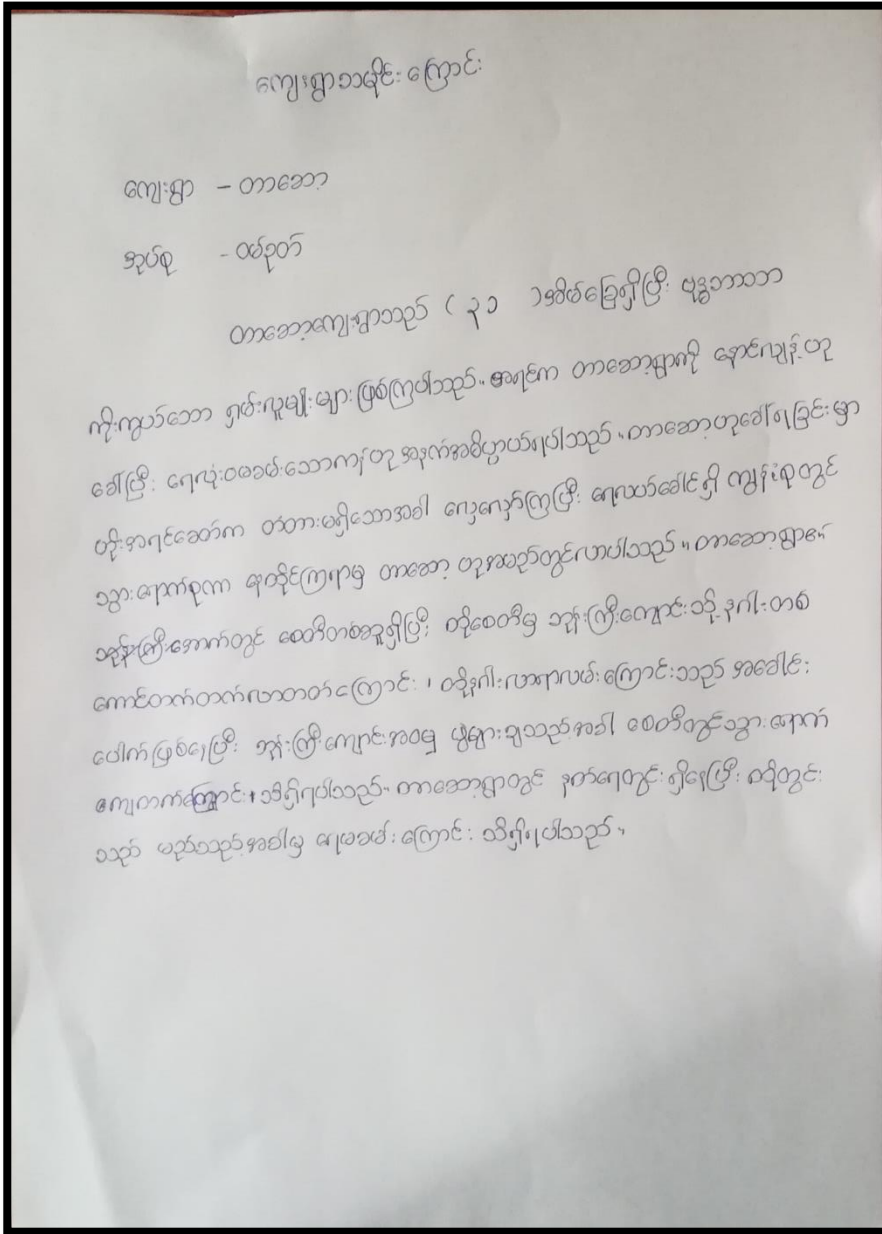 ကျေးရွာသမိုင်းကြောင်း
ကျေးရွာ - တာဆော့
အုပ်စု - ဝမ်ဥတ်
တာဆော့ကျေးရွာသည် ( ၃၁ )အိမ်ခြေရှိပြီး ဗုဒ္ဓဘာသာ
ကိုးကွယ်သော ရှမ်းလူမျိုးများဖြစ်ကြပါသည်။ အရင်က တာဆော့ရွာကို နောင်လျှန့်ဟု
ခေါ်ပြီး ရေလုံးဝမခမ်းသောကန်ဟု အနက်အဓိပ္ပာယ်ရပါသည်။ တာဆော့ဟုခေါ်ရခြင်းမှာ
ဟိုးအရင်ခေတ်က တံတားမရှိသောအခါ လှေလှော်ကြပြီး ရေလယ်ခေါင်ရှိ ကျွန်းစုတွင်
သွားရောက်စုကာ နေထိုင်ကြရာမှ တာဆော့ ဟုအမည်တွင်လာပါသည်။ တာဆော့ရွာ၏
ဘုန်းကြီးအောက်တွင် စေတီတစ်ဆူရှိပြီး ထိုစေတီမှ ဘုန်းကြီးကျောင်းသို့ နဂါးတစ်
ကောင်တက်တက်လာတတ်ကြောင်း ၊ ထိုနဂါးလာရာလမ်းကြောင်းသည် အခေါင်း
ပေါက်ဖြစ်နေပြီး ဘုန်းကြီးကျောင်းအဝမှ ပွဲများချသည့်အခါ စေတီတွင်သွားရောက်
ကျတက်ကြောင်း ၊ သိရှိရပါသည်။ တာဆော့ရွာတွင် နတ်ရေတွင်းရှိနေပြီး ၎င်းတွင်း
သည် မည်သည့်အခါမှ ရေမခမ်းကြောင်း သိရှိရပါသည်။